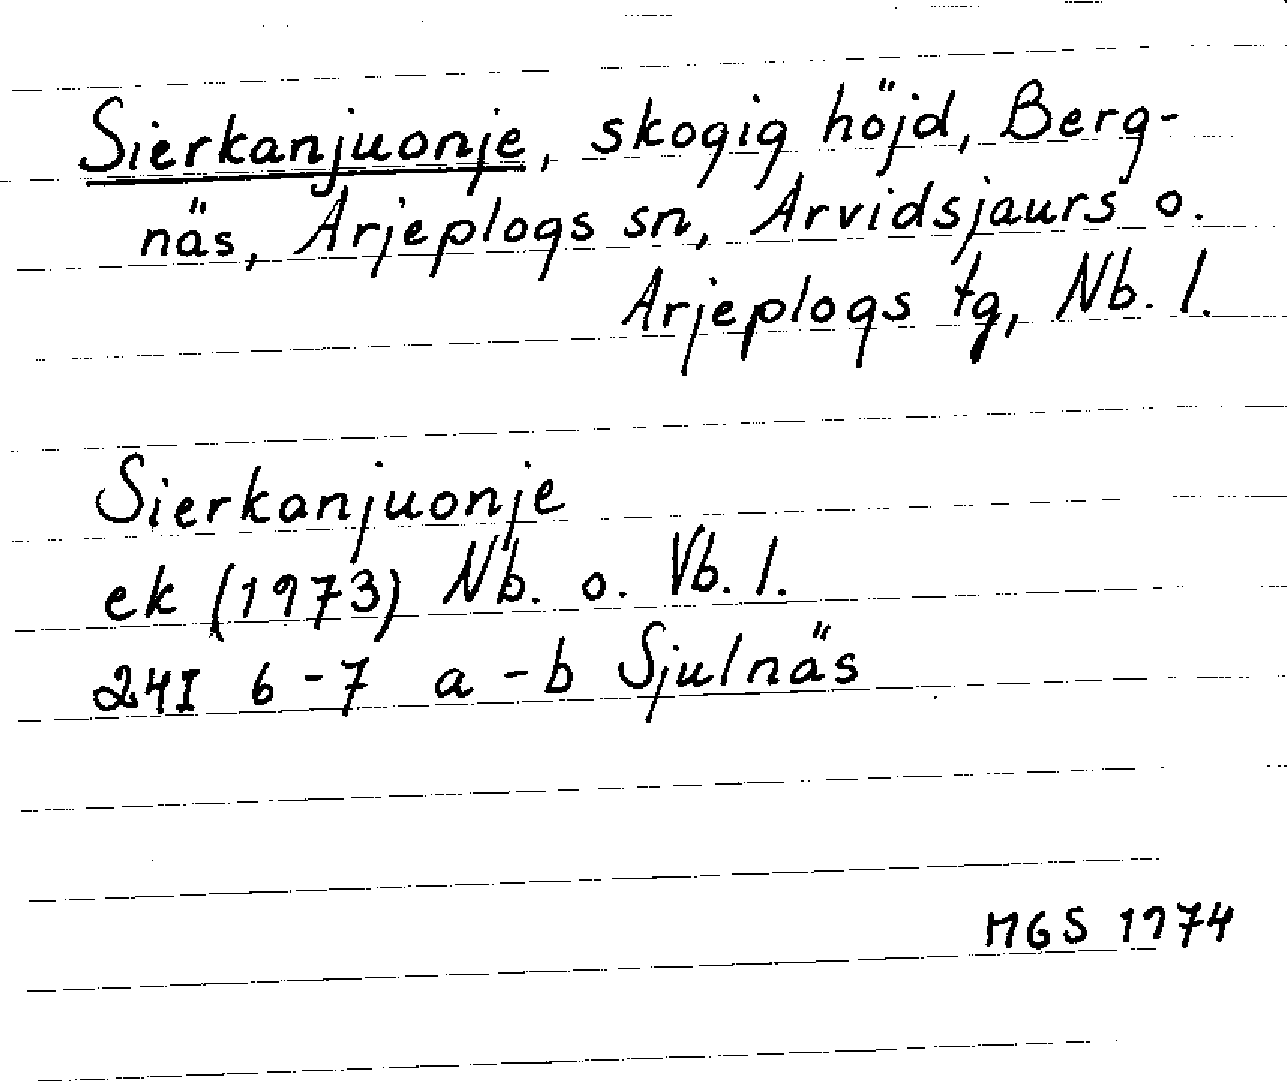 Sierkanjuonje, skogig höjd, Berg-
näs, Arjeplogs sn, Arvidsjaurs o.
Arjeplogs tg, Nb. l.
Sierkanjuonje
ek (1973) Nb. o. Vb. l.
24I 6-7 a-b Sjulnäs
MGS 1974